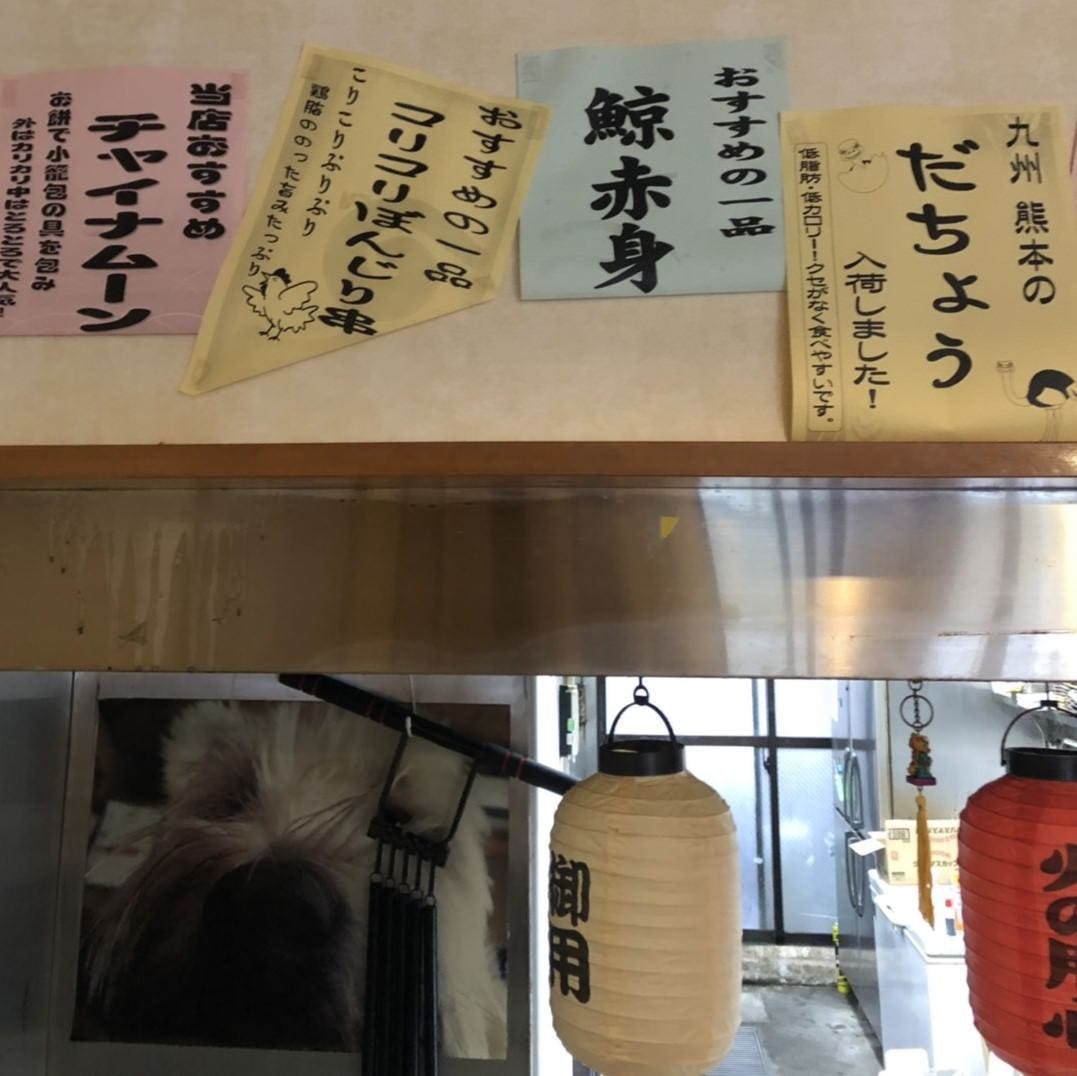 当店おすすめ
チャイナムーン
お餅で小籠包の具を包み
外はカリカリ中はとろとろで大人気!
おすすめの一品
コリコリぼんじり串
こりこりぷりぷり
鶏脂ののった旨みたっぷり
おすすめの一品
鯨赤身
九州 熊本の
だちょう
入荷しました!
低脂肪・低カロリー!クセがなく食べやすいです。
御用
火の用心